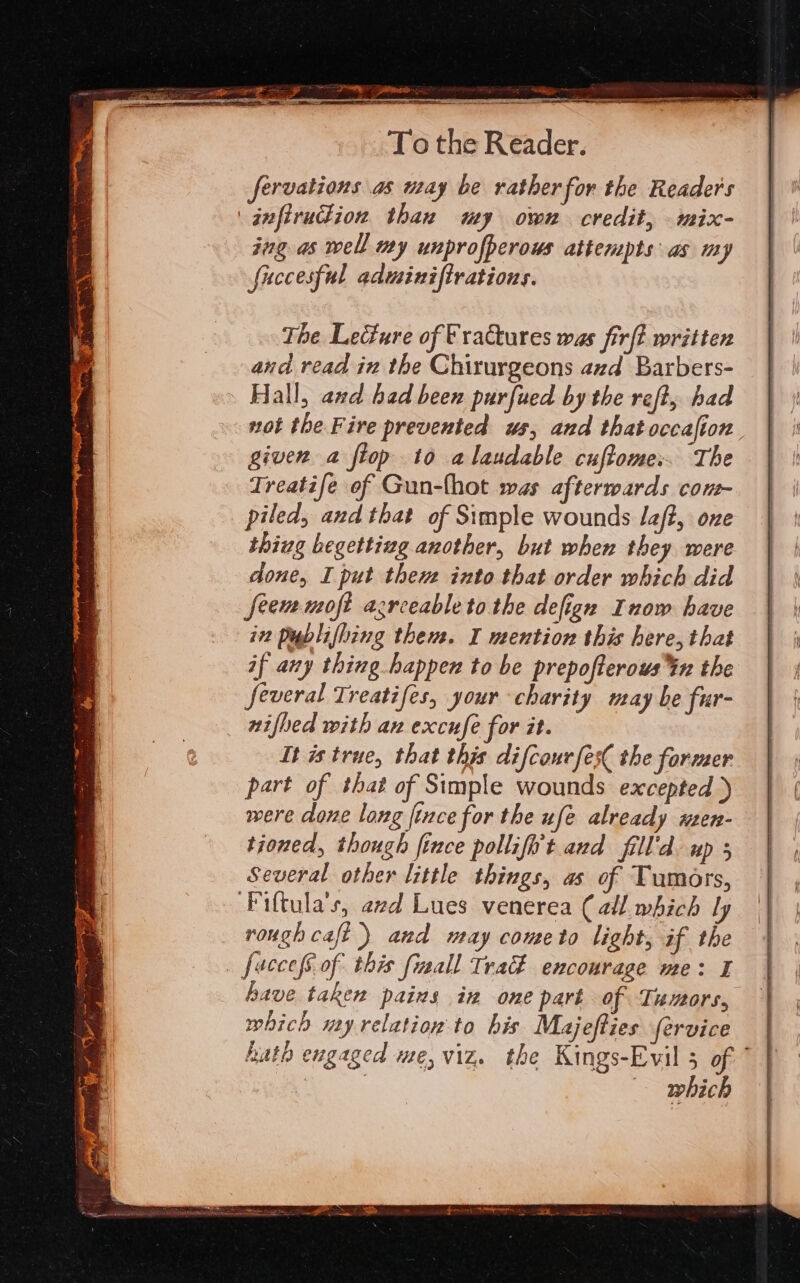 To the Reader.
ſervations as may be rather for the Readers
inſtruction than my own credit, mix-
ing as well my unproſperous attempts as my
ſuccesful adminiſtrations.
The Lecture of Fractures was firſt written
and read in the Chirurgeons and Barbers-
Hall, and had been purſued by the reſt, had
not the Fire prevented us, and that occaſion
given a ſtop to a laudable cuſtome. The
Treatiſe of Gun-ſhot was afterwards com-
piled, and that of Simple wounds laſt, one
thing begetting another, but when they were
done, I put them into that order which did
ſeem moſt agreeable to the deſign I now have
in publiſhing them. I mention this here, that
if any thing happen to be prepoſterous in the
ſeveral Treatiſes, your charity may be fur-
niſhed with an excuſe for it.
It is true, that this diſcourſes( the former
part of that of Simple wounds excepted )
were done long ſince for the uſe already men-
tioned, though ſince polliſh't and fill'd up ;
Several other little things, as of Tumors,
Fiſtula's, and Lues venerea ( all which ly
rough caſt ) and may come to light, if the
ſucceſs of this ſmall Tract encourage me : I
have taken pains in one part of Tumors,
which my relation to his Majeſties ſervice
hath engaged me, viz. the Kings-Evil ; of
which